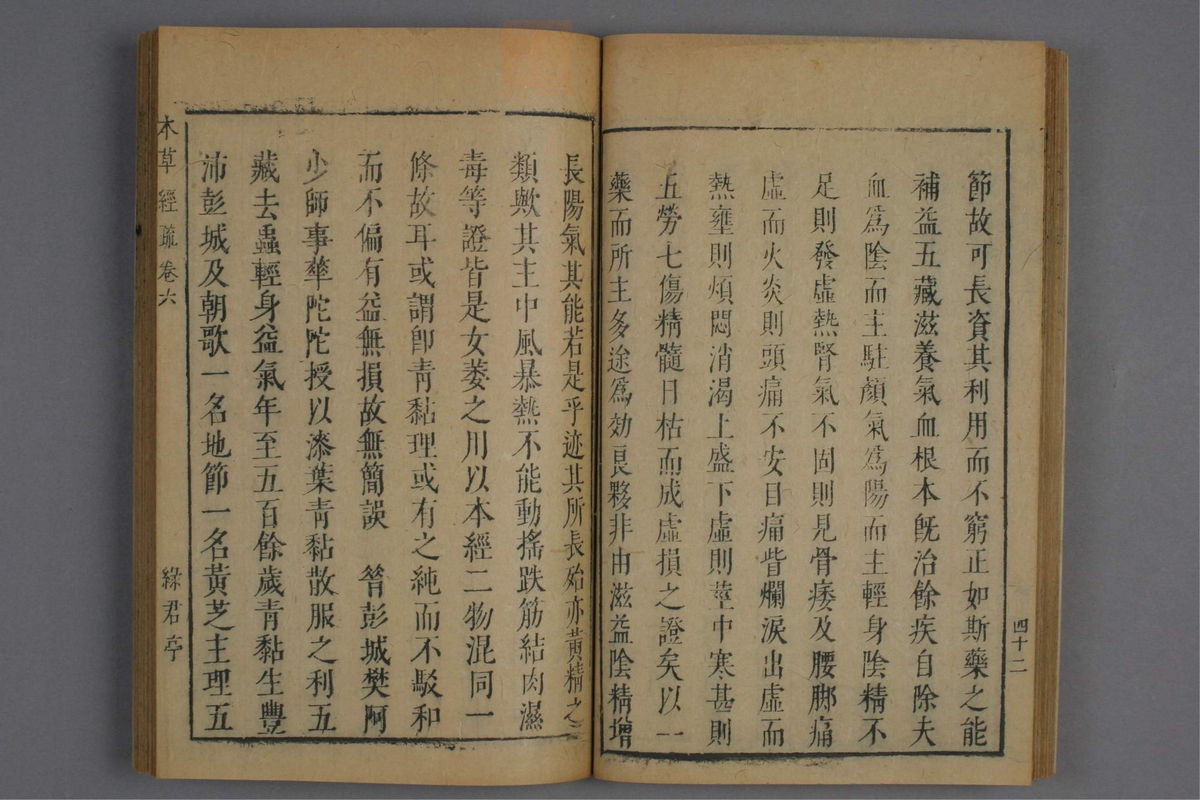 節故可長資其利用而不窮正如斯藥之能
補益五藏滋養氣血根本旣治餘疾自除夫
血爲陰而主駐顏氣爲陽而主輕身陰精不
足則發虛熱腎氣不固則見骨痿及腰脚痛
虛而火炎則頭痛不安目痛眥爛淚出虛而
熱壅則煩悶消渴上盛下虛則莖中寒甚則
五勞七傷精髓日枯而成虛損之證矣以一
藥而所主多途爲効良夥非由滋益陰精增
四十二
長陽氣其能若是乎迹其所長殆亦黃精之
類歟其主中風暴熱不能動搖跌筋結肉濕
毒等證皆是女萎之用以本經二物混同一
條故耳或謂卽靑黏理或有之純而不駁和
而不偏有益無損故無簡誤　昝彭城樊阿
少師事華陀陀授以漆葉靑黏散服之利五
藏去蟲輕身益氣年至五百餘歲靑黏生豐
沛彭城及朝歌一名地節一名黃芝主理五
本草經疏卷六
綠君亭